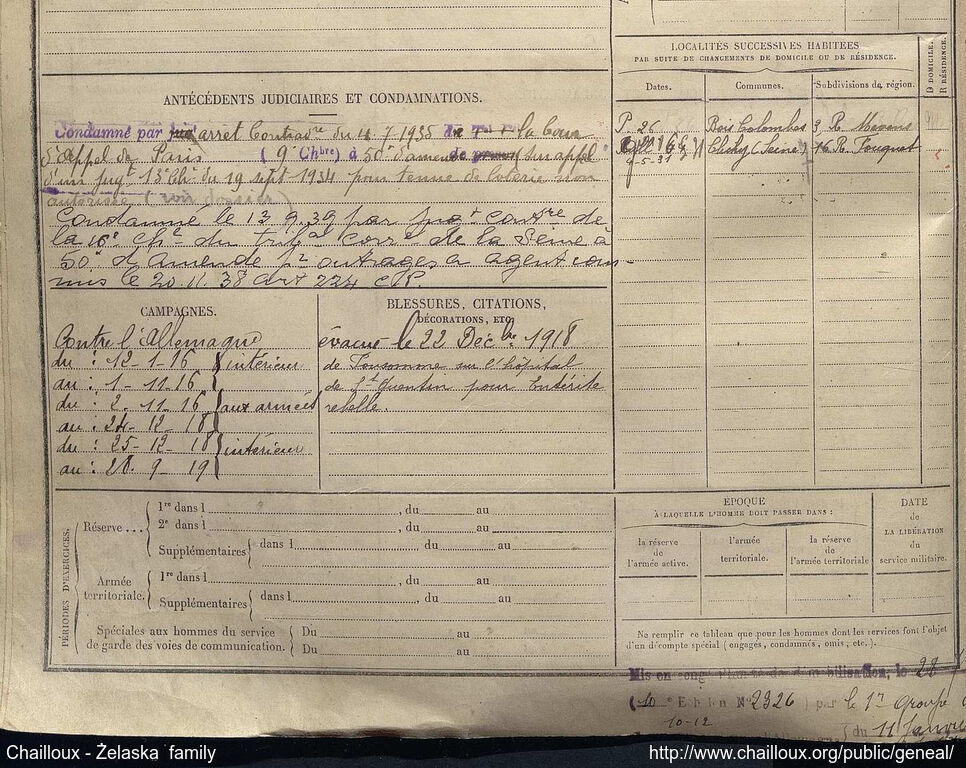 ANTÉCÉDENTS JUDICIAIRES ET CONDAMNATIONS.
Condamné par arret Contradre du 4 7 1935 la Cour
d'Appel de Paris (9e Chbre) à 50f d'amende sur appel
d'un jugt 13e Ch. du 19 sept 1934 pour tenue de loterie non
autorisée (voir dossier)
Condamné le 13.9.39 par jugt contre de
la 16e Che du tribal correl de la Seine à
50f d'amende pr outrages à agent com-
mis le 20.11.38 art 224 CP.
CAMPAGNES.
Contre l'Allemagne
du : 12-1-16 intérieur
au : 1-11-16
du : 2-11-16 aux armées
au : 24-12-18
du : 25-12-18 intérieur
au : 28-9-19
BLESSURES, CITATIONS,
DÉCORATIONS, ETC.
évacué le 22 Décbre 1918
de sur l'hôpital
de St Quentin pour Entérite
rebelle.
LOCALITÉS SUCCESSIVES HABITÉES
PAR SUITE DE CHANGEMENTS DE DOMICILE OU DE RÉSIDENCE.
Dates. Communes. Subdivisions de région. D DOMICILE. R RÉSIDENCE.
26 Bois Colombes 3 R.
9-5-31 Clichy (Seine) 16 R. Fouquet
PÉRIODES D'EXERCICES.
Réserve... 1re dans l , du au
2e dans l , du au
Supplémentaires dans l du au
Armée territoriale. 1re dans l , du au
Supplémentaires dans l , du au
Spéciales aux hommes du service Du au
de garde des voies de communication. Du au
ÉPOQUE
À LAQUELLE L'HOMME DOIT PASSER DANS :
la réserve de l'armée active.
l'armée territoriale.
la réserve de l'armée territoriale
DATE de LA LIBÉRATION du service militaire.
Ne remplir ce tableau que pour les hommes dont les services font l'objet
d'un décompte spécial (engagés, condamnés, omis, etc.).
Mis en congé de démobilisation, le 28
(10e Echelon No 2326) par le 1er groupe
10-12
(du 11 Janvier
Chailloux - Żelaska family
http://www.chailloux.org/public/geneal/